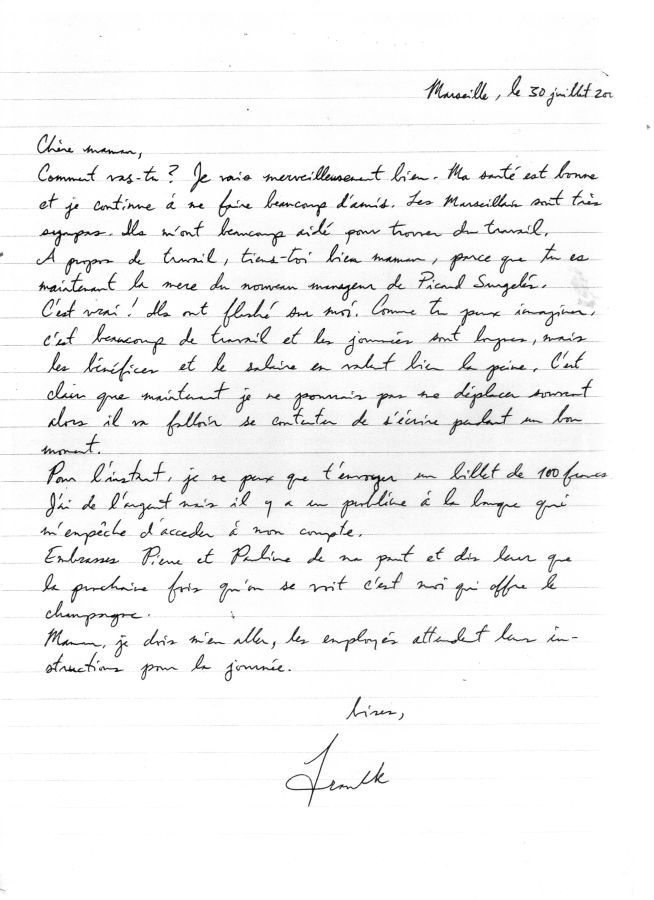 Marseille, le 30 juillet 200
Chère maman,
Comment vas-tu? Je vais merveilleusement bien. Ma santé est bonne
et je continue à me faire beaucoup d'amis. Les Marseillais sont très
sympas. Ils m'ont beaucoup aidé pour trouver du travail.
A propos de travail, tiens-toi bien maman, parce que tu es
maintenant la mere du nouveau manageur de Picard Surgelés.
C'est vrai! Ils ont flashé sur moi. Comme tu peux imaginer,
c'est beaucoup de travail et les journées sont longues, mais
les bénéfices et le salaire en valent bien la peine. C'est
clair que maintenant je ne pourrais pas me déplacer souvent
alors il va falloir se contenter de s'écrire pendant un bon
moment.
Pour l'instant, je ne peux que t'envoyer un billet de 100 francs
J'ai de l'argent mais il y a un problème à la banque qui
m'empêche d'acceder à mon compte.
Embrasses Pierre et Pauline de ma part et dis leur que
la prochaine fois qu'on se voit c'est moi qui offre le
champagne.
Maman, je dois m'en aller, les employés attendent leurs in-
structions pour la journée.
bises,
Franck